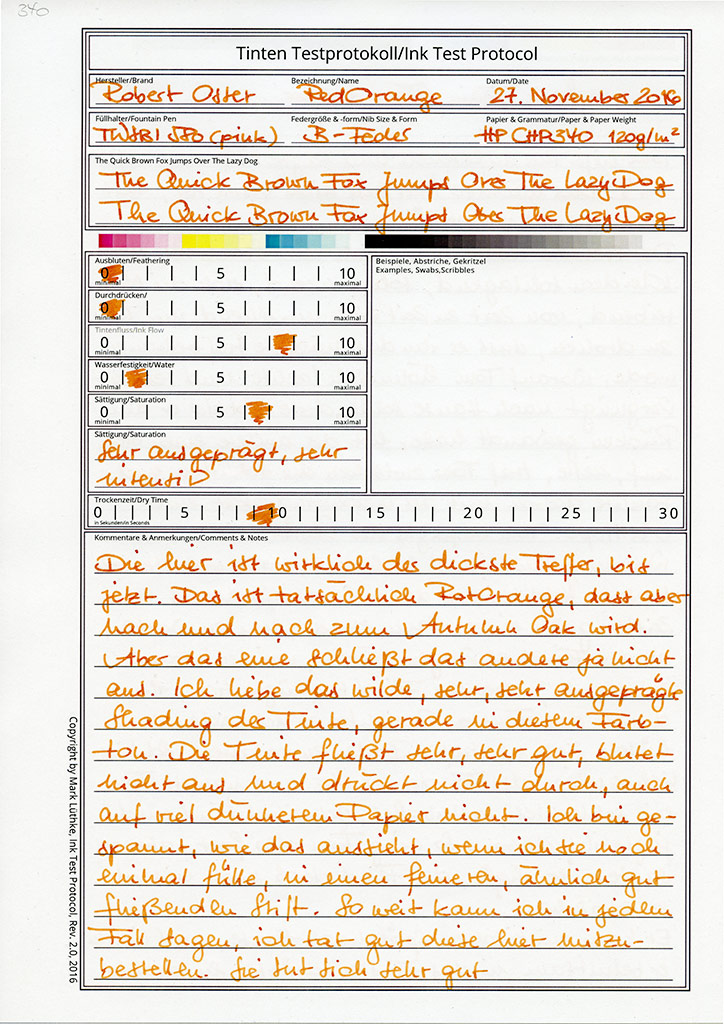 340
Tinten Testprotokoll/Ink Test Protocol
Hersteller/Brand Bezeichnung/Name Datum/Date
Robert Oster RedOrange 27. November 2016
Füllhalter/Fountain Pen Federgröße & -form/Nib Size & Form Papier & Grammatur/Paper & Paper Weight
TWSBI 580 (pink) B-Feder HP CHR340 120g/m²
The Quick Brown Fox Jumps Over The Lazy Dog
The Quick Brown Fox Jumps Over The Lazy Dog
The Quick Brown Fox Jumps Over The Lazy Dog
Ausbluten/Feathering
0 5 10
minimal maximal
Durchdrücken/
0 5 10
minimal maximal
Tintenfluss/Ink Flow
0 5 10
minimal maximal
Wasserfestigkeit/Water
0 5 10
minimal maximal
Sättigung/Saturation
0 5 10
minimal maximal
Sättigung/Saturation
Sehr ausgeprägt, sehr
intensiv
Beispiele, Abstriche, Gekritzel
Examples, Swabs,Scribbles
Trockenzeit/Dry Time
0 5 10 15 20 25 30
in Sekunden/in Seconds
Kommentare & Anmerkungen/Comments & Notes
Die hier ist wirklich des dickste Treffer, bis
jetzt. Das ist tatsächlich RotOrange, dass aber
nach und nach zum Autumn Oak wird.
Aber das eine schließt das andere ja nicht
aus. Ich liebe das wilde, sehr, sehr ausgeprägte
Shading der Tinte, gerade in diesem Farb-
ton. Die Tinte fließt sehr, sehr gut, blutet
nicht aus und drückt nicht durch, auch
auf viel dünnerem Papier nicht. Ich bin ge-
spannt, wie das aussieht, wenn ich sie noch
einmal fülle, in einen feineren, ähnlich gut
fließenden Stift. So weit kann ich in jedem
Fall sagen, ich tat gut diese hier mitzu-
bestellen. Sie tut sich sehr gut
Copyright by Mark Lüthke, Ink Test Protocol, Rev. 2.0, 2016